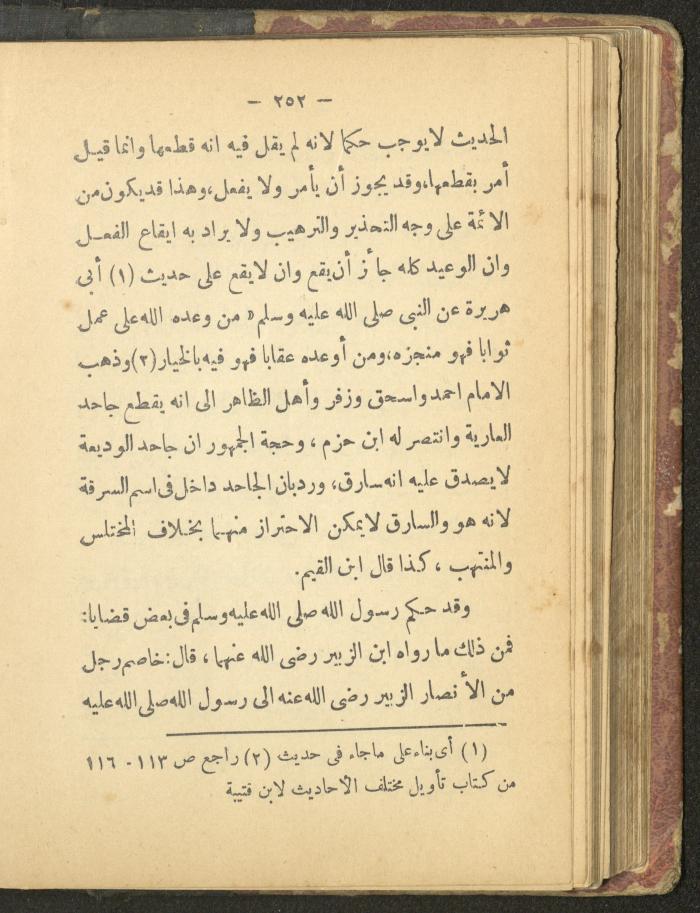 — ٢٥٢ —
الحديث لا يوجب حكما لانه لم يقل فيه انه قطعها وانما قيل
أمر بقطعها، وقد يجوز أن يأمر ولا يفعل، وهذا قد يكون من
الائمة على وجه التحذير والترهيب ولا يراد به ايقاع الفعل
وان الوعيد كله جائز أن يقع وان لا يقع على حديث (١) أبى
هريرة عن النبى صلى الله عليه وسلم « من وعده الله على عمل
ثوابا فهو منجزه، ومن أوعده عقابا فهو فيه بالخيار (٢) وذهب
الامام احمد واسحق وزفر وأهل الظاهر الى انه يقطع جاحد
العارية وانتصر له ابن حزم ، وحجة الجمهور ان جاحد الوديعة
لا يصدق عليه انه سارق، ورد بان الجاحد داخل فى اسم السرقة
لانه هو والسارق لا يمكن الاحتراز منهما بخلاف المختلس
والمنتهب ، كذا قال ابن القيم.
وقد حكم رسول الله صلى الله عليه وسلم فى بعض قضايا:
فمن ذلك ما رواه ابن الزبير رضى الله عنهما ، قال: خاصم رجل
من الأنصار الزبير رضى الله عنه الى رسول الله صلى الله عليه
(١) أى بناء على ماجاء فى حديث (٢) راجع ص ١١٣ - ١١٦
من كتاب تأويل مختلف الاحاديث لابن قتيبة